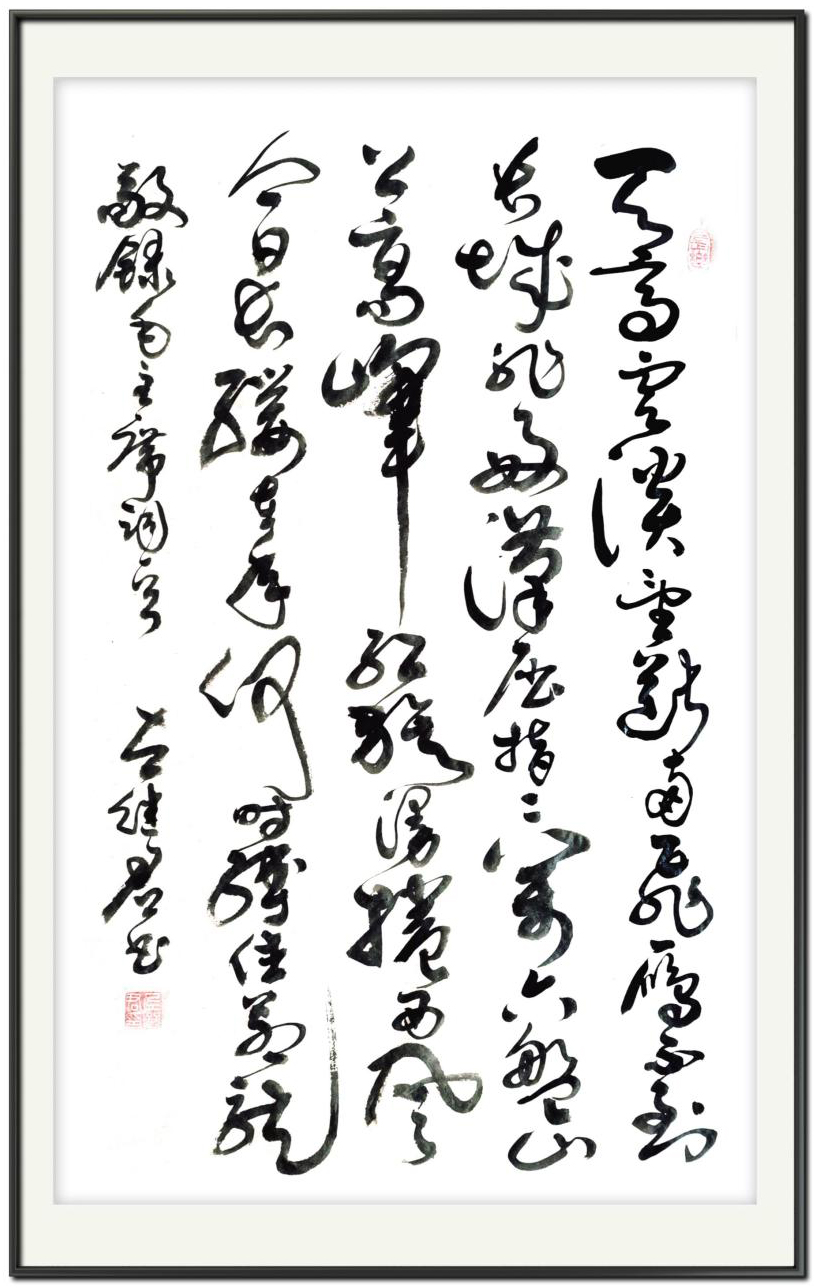 天高雲淡望斷南飛雁不到
長城非好漢屈指二萬六盤山
上高峰紅旗漫捲西風
今日長纓在手何时縛住蒼龍
敬錄毛主席詞 继君书